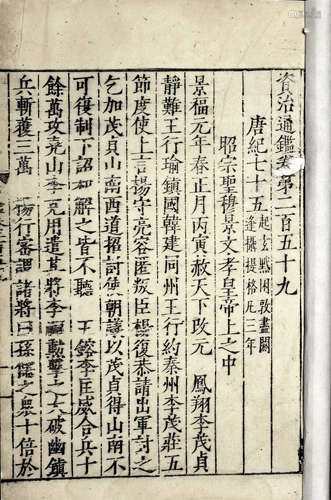 資治通鑑卷第二百五十九
唐紀七十五 起玄黓困敦盡閼
逢攝提格凡三年
昭宗聖穆景文孝皇帝上之中
景福元年春正月丙寅赦天下改元 鳳翔李茂貞
靜難王行瑜鎮國韓建同州王行約秦州李茂莊五
節度使上言楊守亮容匿叛臣楊復恭請出軍討之
乞加茂貞山南西道招討使朝議以茂貞得山南不
可復制下詔和解之皆不聽 王鎔李匡威合兵十
餘萬攻堯山李克用遣其將李嗣勳擊之大破幽鎮
兵斬獲三萬 楊行密謂諸將曰孫儒之衆十倍於